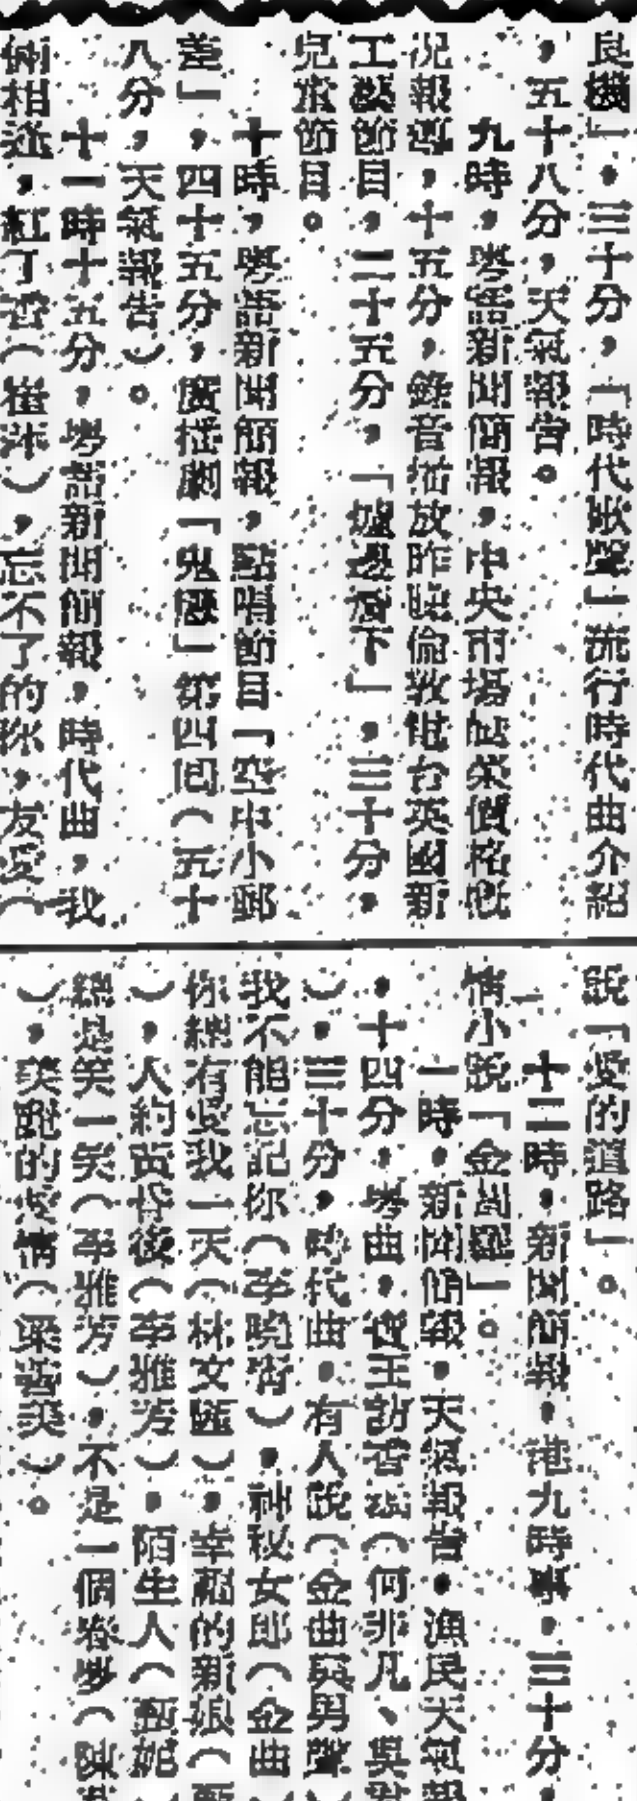 良機」，三十分，「時代歌聲」流行時代曲介紹
，五十八分，天氣報告。
九時，粵語新聞簡報，中央市場蔬菜價格
況報導，十五分，錄音播放昨晚倫敦電台英國新
工藝節目，二十五分，「爐邊 下」，三十分，
兒童節目。
十時，粵語新聞簡報，點唱節目「空中小郵
差」，四十五分，廣播劇「鬼 」第四回（五十
八分，天氣報告）。
十一時十五分，粵語新聞簡報，時代曲，我
倆相逢，紅丁香（崔萍），忘不了的你，友愛（
說「愛的道路」。
十二時，新聞簡報，港九時事，三十分，
情小說「金 」。
一時，新聞簡報，天氣報告，漁民天氣報
，十四分，粵曲， 王訪香 （何非凡、吳君
），三十分，時代曲，有人說（金曲與男聲
我不能忘記你（李曉 ），神秘女郎（金曲
你總有愛我一天（林文 ），幸福的新娘（
），人約黃昏後（李雅芳），陌生人（甄妮
總是笑一笑（李雅芳），不是一個春夢（陳
），美麗的 情（梁 美）。